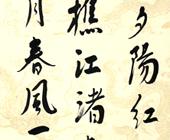 夕陽紅
樵江渚
月春風一